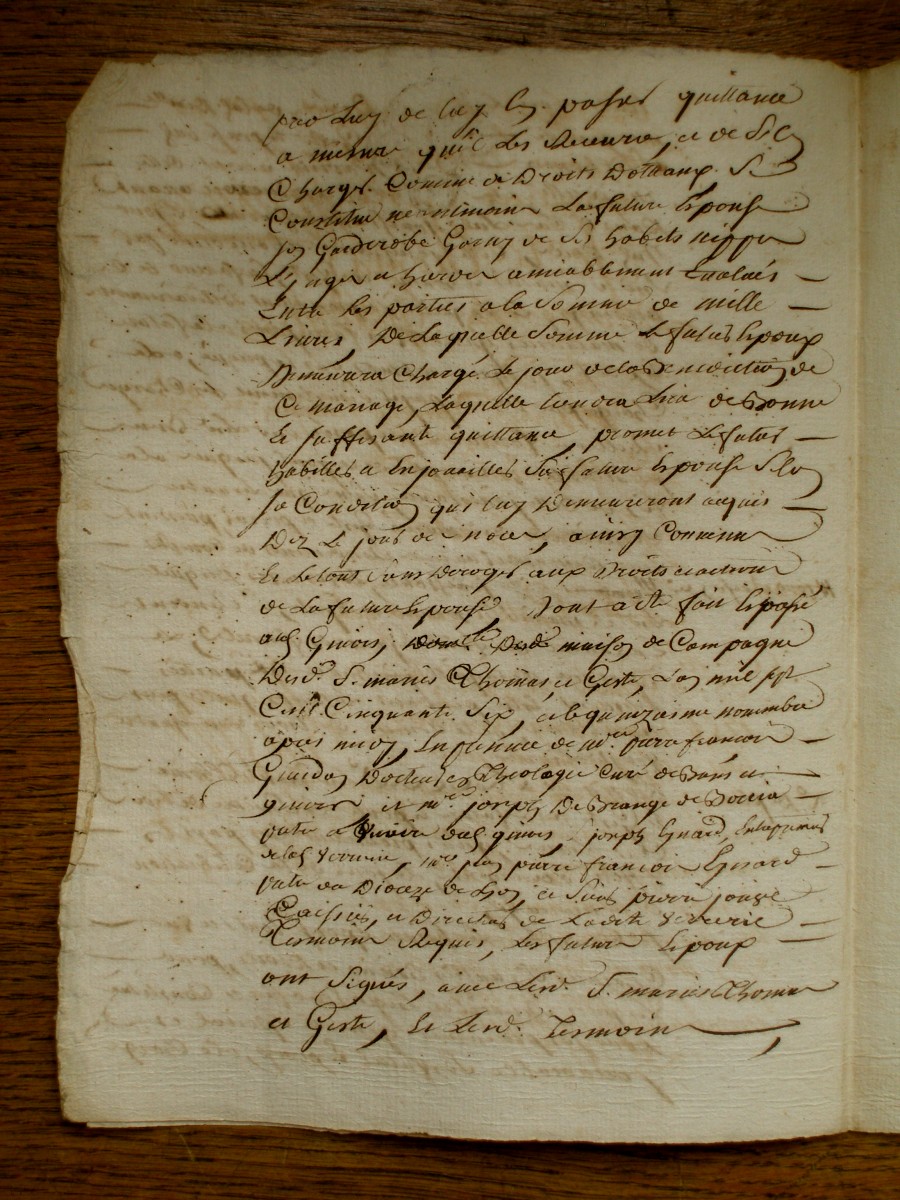 par luy de luy en passer quittance
a mesure qu'il les Recevra, et de s'en
Charger Comme de Droits Dotaux. Se
Constitue neanmoins La future Epouse
son Garderobe Garny de ses habits nippes
Linges et hardes amiablement Evalués
Entre les parties a la Somme de mille
Livres, De Laquelle Somme Le futur Epoux
Demeurera Chargé Le jour de la Benediction de
Ce mariage, Laquelle tiendra Lieu de Bonne
Et suffisante quittance, promet Le futur
habiller et Enjoueller sa future Epouse selon
sa Condition qui luy Demeureront acquis
Dez Le jour de noces, ainsy Convenu
Et Le tout sans Deroger aux Droits et actions
de La future Epouse Dont acte fait Et passé
aud. Givors, maison de Campagne
Desd. S. mariés Thomas et Geste, L'an mil sept
Cent Cinquante Six, et le quinzieme novembre
après midy, En presence de mre. pierre françois
Docteur En Theologie Curé de Bans et
givors et mre. joseph De
a aud. givors, joseph Entrepreneur
de lad. verrerie, mre. jean pierre françois
du Dioceze de Lyon, et Sieur pierre jouve
Caissier, et Directeur de Ladite verrerie
Temoins Requis, Les futurs Epoux
ont Signés, avec Lesd. S. mariés Thomas
et Geste, Et Lesd. Temoins